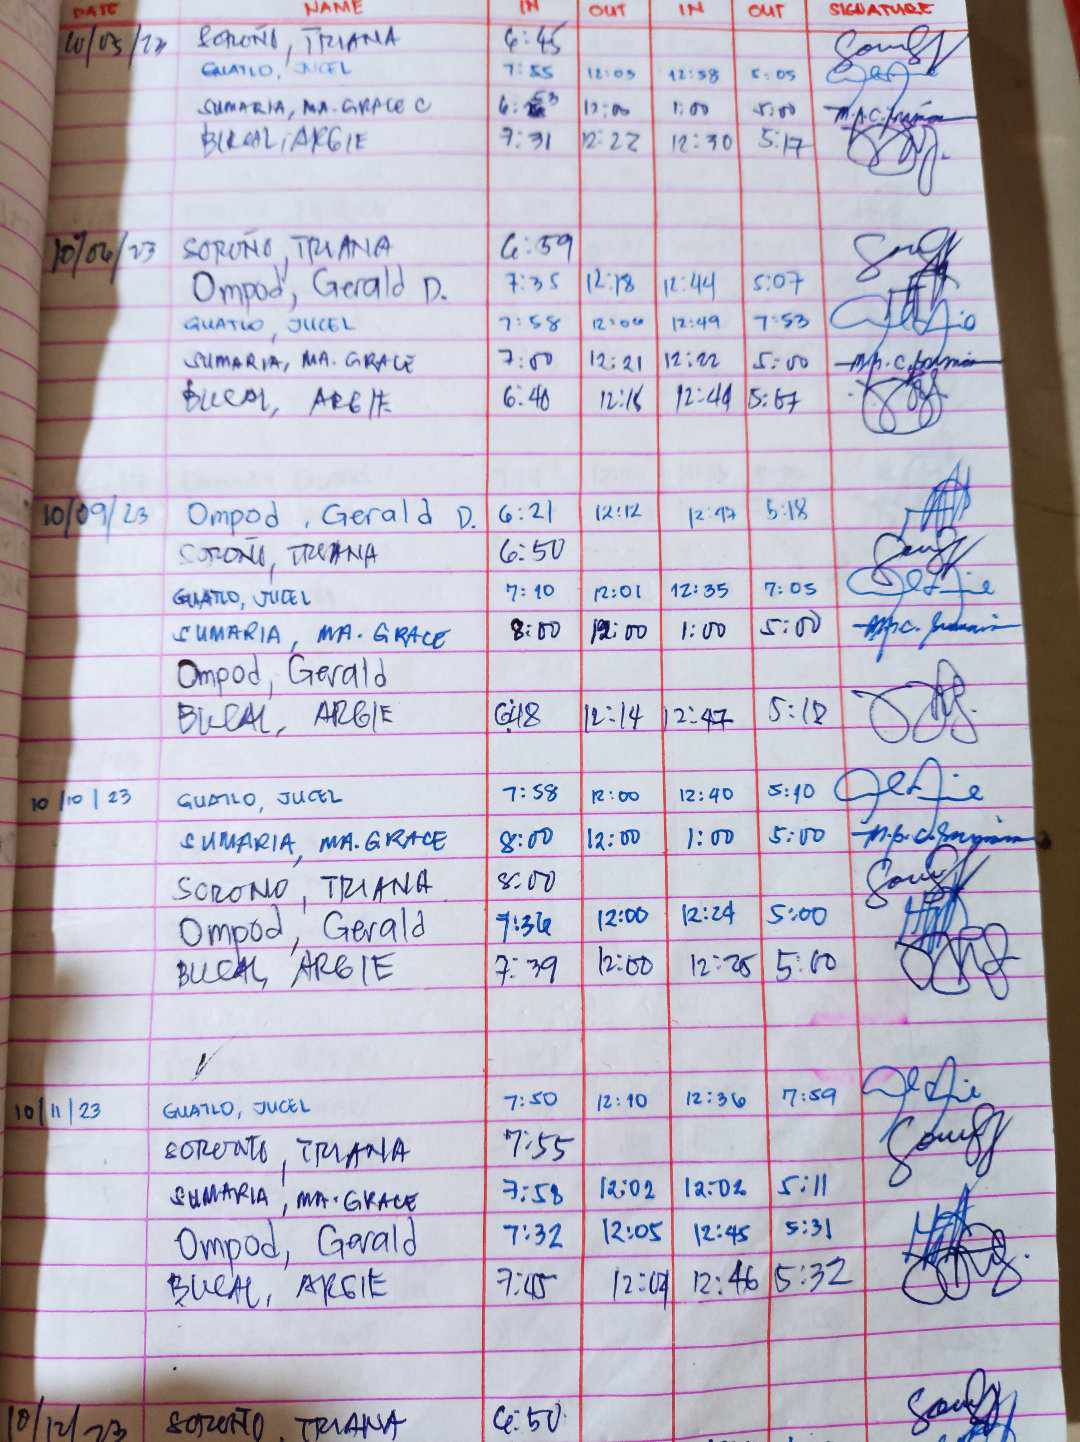 DATE NAME IN OUT IN OUT SIGNATURE
10/05/23 SOROÑO, TRIANA 6:45
GUATLO, JUCEL 7:55 12:03 12:58 5:05
SUMARIA, MA. GRACE C 1:00 5:00
BUCAL, ARGIE 7:31 12:22 12:30 5:17
10/06/23 SOROÑO, TRIANA 6:59
Ompod, Gerald D. 7:35 12:18 12:44 5:07
GUATLO, JUCEL 7:58 12:06 12:49 7:53
SUMARIA, MA. GRACE 7:00 12:21 12:22 5:00
BUCAL, ARGIE 6:40 12:16 12:44 5:07
10/09/23 Ompod, Gerald D. 6:21 12:12 12:47 5:18
SOROÑO, TRIANA 6:50
GUATLO, JUCEL 7:10 12:01 12:35 7:05
SUMARIA, MA. GRACE 8:00 12:00 1:00 5:00
Ompod, Gerald
BUCAL, ARGIE 6:18 12:14 12:47 5:18
10/10/23 GUATLO, JUCEL 7:58 12:00 12:40 5:10
SUMARIA, MA. GRACE 8:00 12:00 1:00 5:00
SOROÑO, TRIANA 8:00
Ompod, Gerald 7:36 12:00 12:24 5:00
BUCAL, ARGIE 7:39 12:00 12:25 5:00
10/11/23 GUATLO, JUCEL 7:50 12:10 12:36 7:59
SOROÑO, TRIANA 7:55
SUMARIA, MA. GRACE 7:58 12:02 12:02 5:11
Ompod, Gerald 7:32 12:05 12:45 5:31
BUCAL, ARGIE 7:45 12:04 12:46 5:32
10/12/23 SOROÑO, TRIANA 6:50